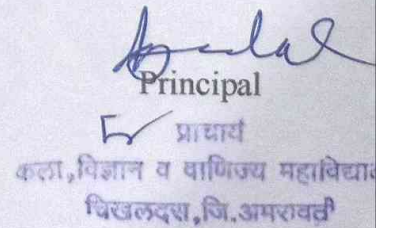 Principal
प्राचार्य
कला,विज्ञान व वाणिज्य महाविद्या
चिखलदरा,जि.अमरावती